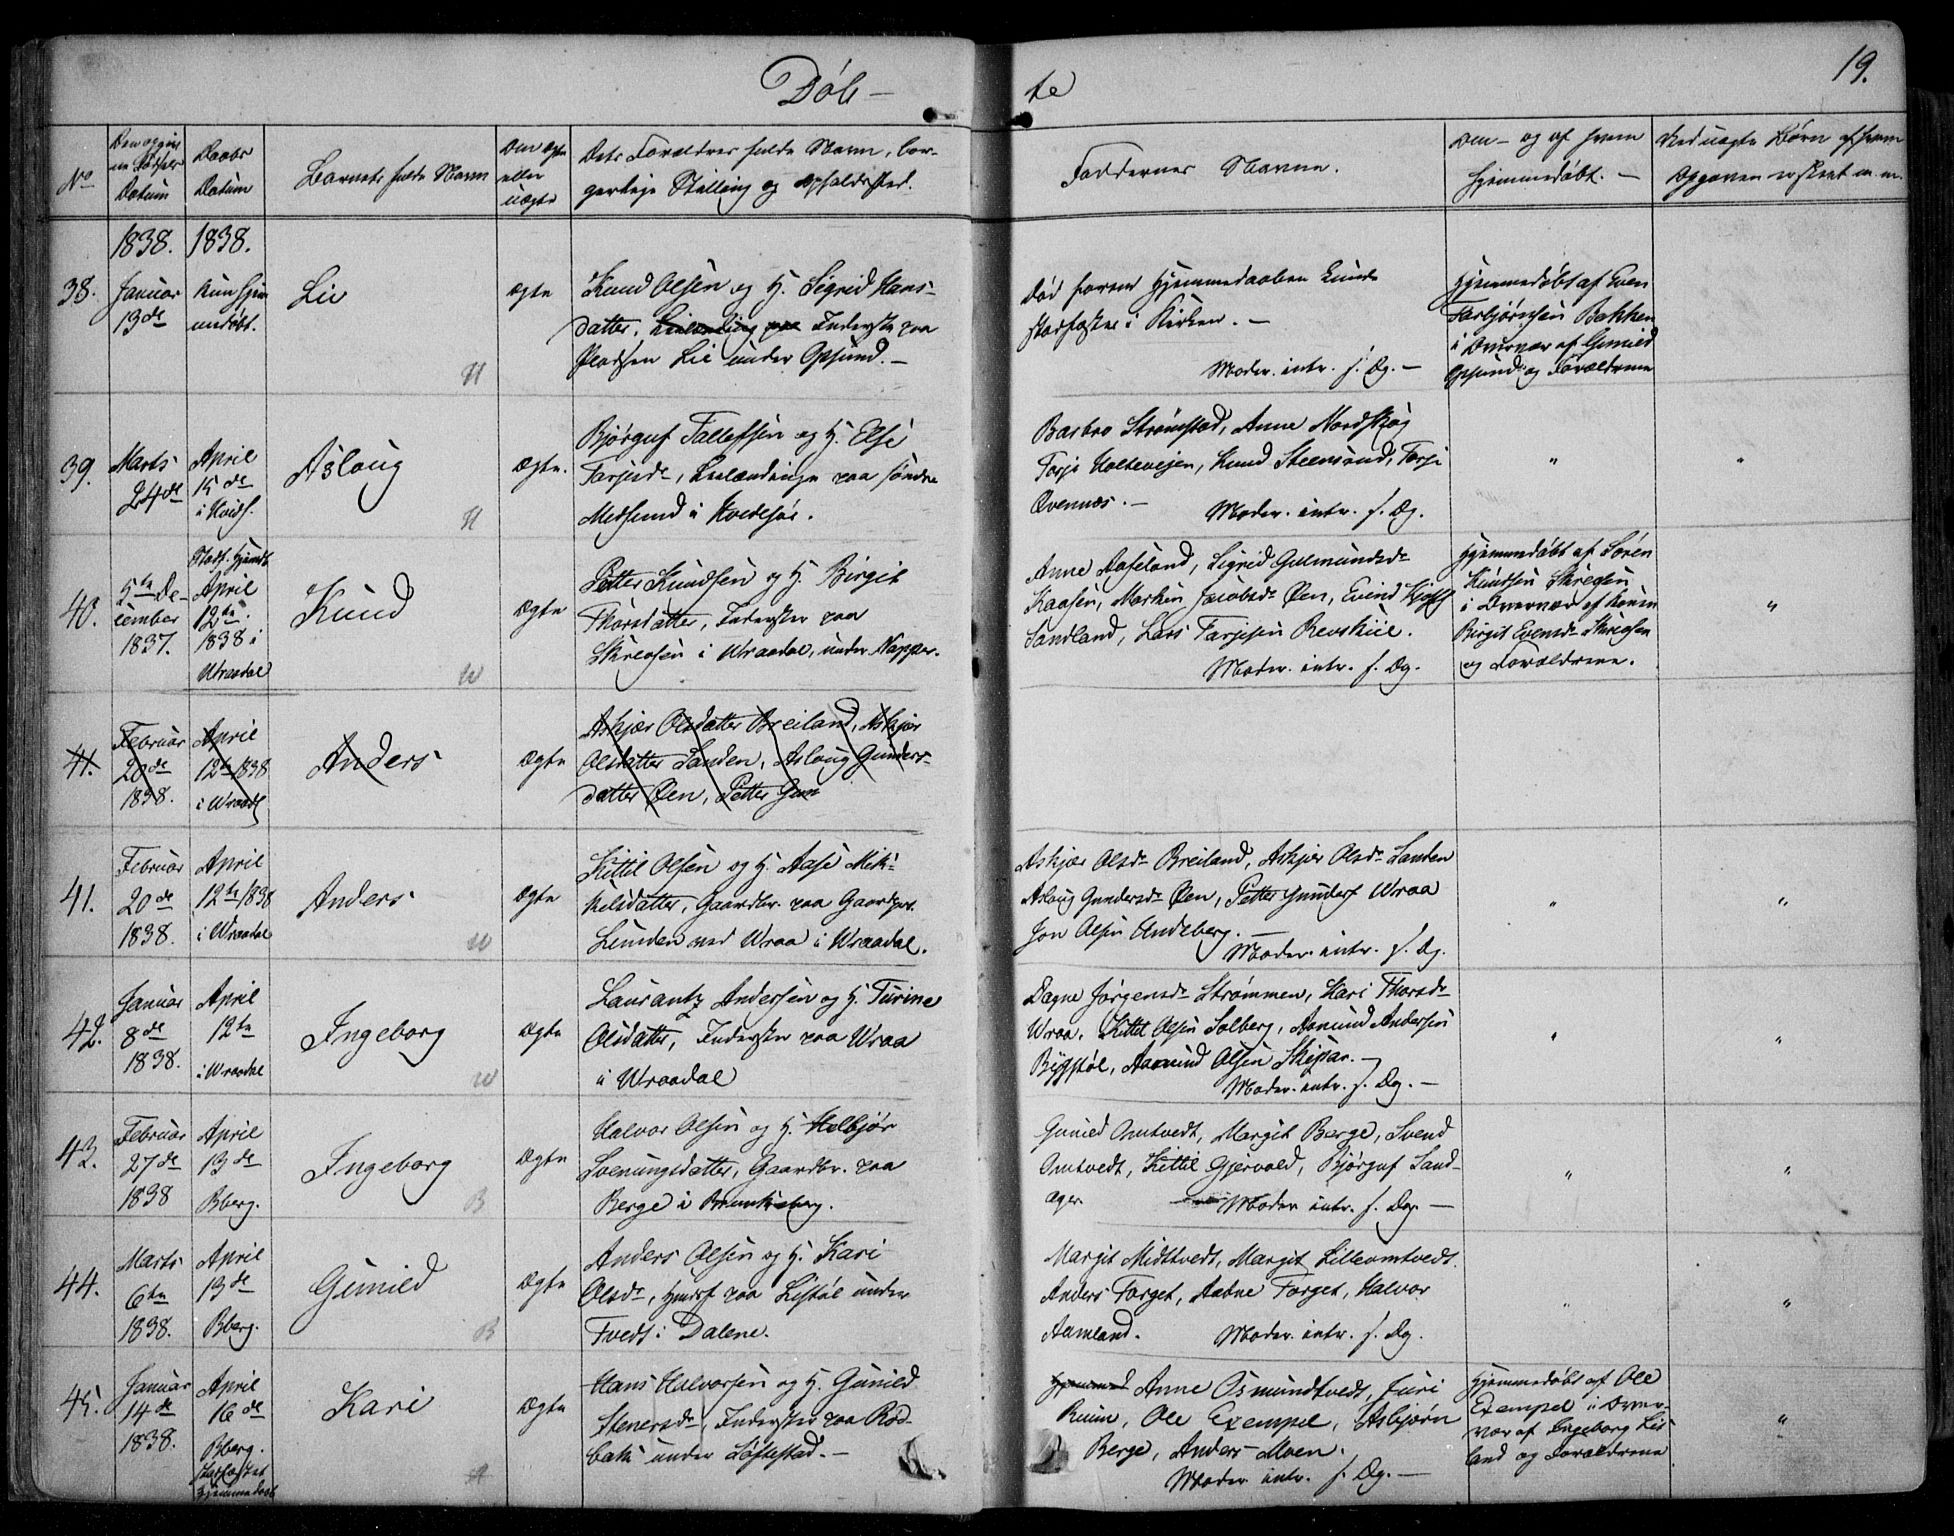 Døb-
te
19.
No
Datum
Daabs
Datum
Barnets fulde Navn
eller
uægte
Dets Forældres fulde Navn, bor-
gerlige Stilling og Opholdssted.
Faddernes Navne.
og af hvem
hjemmedøbt. -
Ved uægte Børn af hvem
Opgaven er skeet m. m.
1838.
1838.
38.
Januar
13de
kun hjem
medøbt.
Liv
ægte
Knud Olsen og H. Sigrid Hans-
datter. Inderster paa
Pladsen Lie under Opsund. -
Død førend Hjemmedaaben kunde
stadfæstes i Kirken. -
Moder. intr. s. Dg. -
Hjemmedøbt af Even
Torbjørnsen Bakken
i Overvær af Gunild
Opsund og Forældrene
39.
Marts
24de
April
15de
i Hvids.
Aslaug
ægte.
Bjørguf Tallefsen og H. Else
Tarjesdr, paa søndre
Midsund i Hvidesøi.
Barbro Strømstad, Anne Nordskog
Torje Holtevejen, Knud Steensrud, Torje
Qvennæs. -
Moder. intr. s. Dg.
"
"
40.
5te De-
cember
1837.
Stadf. Hjemdb.
April
12te
1838 i
Wraadal
Knud
ægte
Petter Knudsen og H. Birgit
Thorsdatter, Inderster paa
Skreosen i Wraadal, under Napper.
Anne Aaseland, Sigrid Gulmundsdr
Kaasen, Jacobsdr Øen, Evind
Sandland, Lars Tarjesen
Moder. intr. s. Dg.
Hjemmedøbt af Søren
Knudsen Skreosen
i Overvær af Konen
Birgit Evensdr Skreosen
og Forældrene.
"
41.
Februar
20de
1838.
April
12te 1838
i Wraadl
Anders
ægte
Askjær Olsdatter Breiland, Askjær
Olsdatter Sanden, Aslaug Gunders-
datter Øen, Petter Gun
41.
Februar
20de
1838.
April
12te 1838
i Wraadal
Anders
ægte
Kittil Olsen og H. Aase Mik-
kelsdatter, Gaardbr. paa Gaardprt.
Lunden ved Wraa i Wraadal.
Askjær Olsdr Breiland, Askjær Olsdr Sanden
Aslaug Gundersdr Øen, Petter Gunders Wraa
Jon Olsen Undeberg. -
Moder. intr. s. Dg.
"
"
42.
Januar
8de
1838.
April
12te
i Wraadal
Ingeborg
ægte
Laurantz Andersen og H. Turine
Olsdatter, Inderster paa Wraa
i Wraadal
Dagne Jørgensdr Strømmen, Kari Thorsdr
Wraa, Kittil Olsen Solberg, Aamund Andersen
Bygstøl, Aamund Olsen Skipar. -
Moder. intr. s. Dg. -
"
"
43.
Februar
27de
1838
April
13de
Bberg.
Ingeborg
ægte
Halvor Olsen og H. Helbjør
Loenungsdatter, Gaardbr. paa
Berge i Brunkeberg.
Gunild Omtvedt, Margit Berge, Svend
Omtvedt, Kittil Gjervold, Bjørguf Sand-
ager
Moder intr. s. Dg -
"
"
44.
Marts
6te
1838.
April
13de
Bberg.
Gunild
ægte
Anders Olsen og H. Kari
Olsdr, Huusf paa Listøl under
Tvedt i Dalene.
Margit Midttvedt, Margit Lilleomtvedt.
Anders Torget, Aabne Torget, Halvor
Aamland.
Moder. intr. s. Dg.
"
"
45.
Januar
14de
1838.
April
16de
Bberg.
stadfæstet
Hjemmedaab
Kari
ægte
Hans Halvorsen og H. Gunild
Stenersdr, Inderster paa Rød-
bæk under Løftestad. -
Anne Osmundtvedt, Juri
Ruum, Ole Exempel, Asbjørn
Berge, Anders Moen.
Moder intr. s. Dg. -
Hjemmedøbt af Ole
Exempel i Over-
vær af Ingeborg Lis
land og Forældrene
"